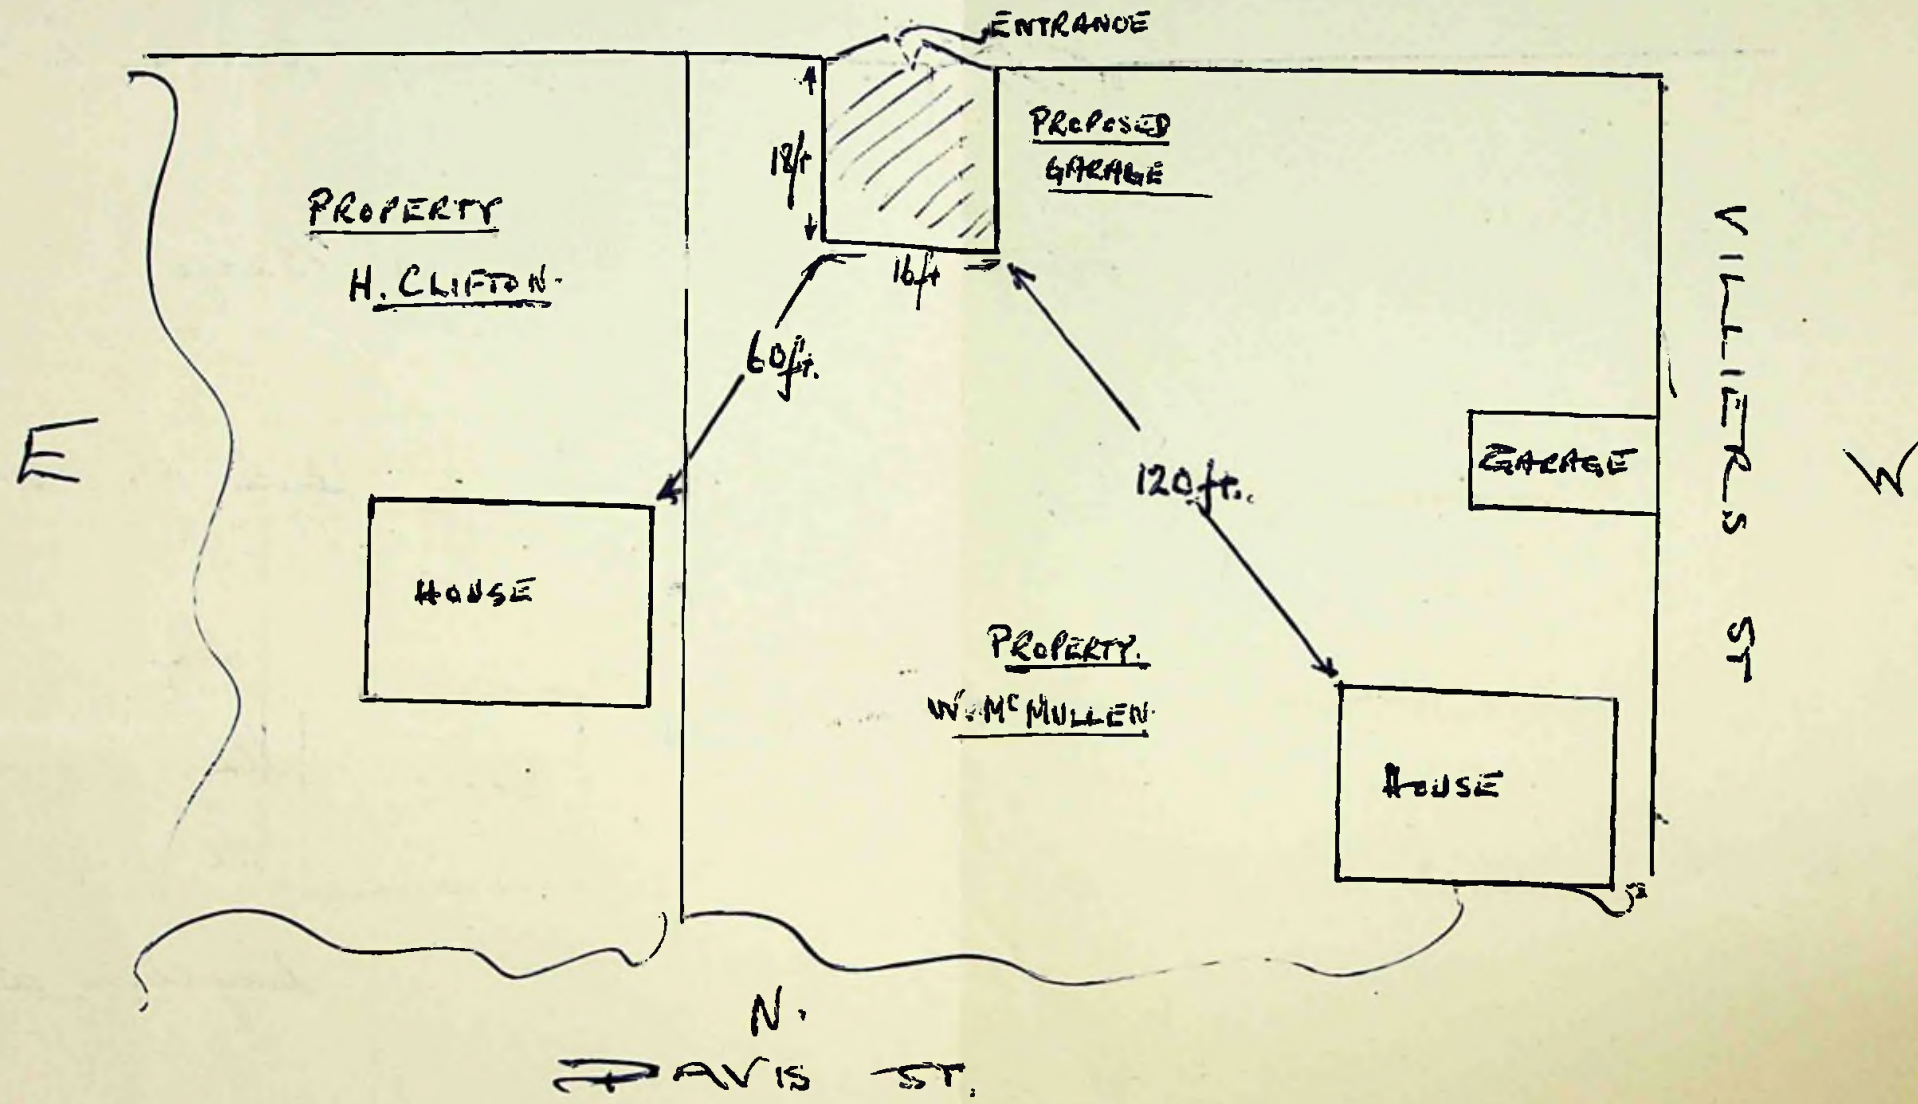 ENTRANCE
PROPOSED
GARAGE
18ft
16ft
PROPERTY
H. CLIFTON.
60ft.
120ft.
E
W
VILLIERS ST
GARAGE
HOUSE
PROPERTY.
W. Mc MULLEN.
HOUSE
N.
DAVIS ST.